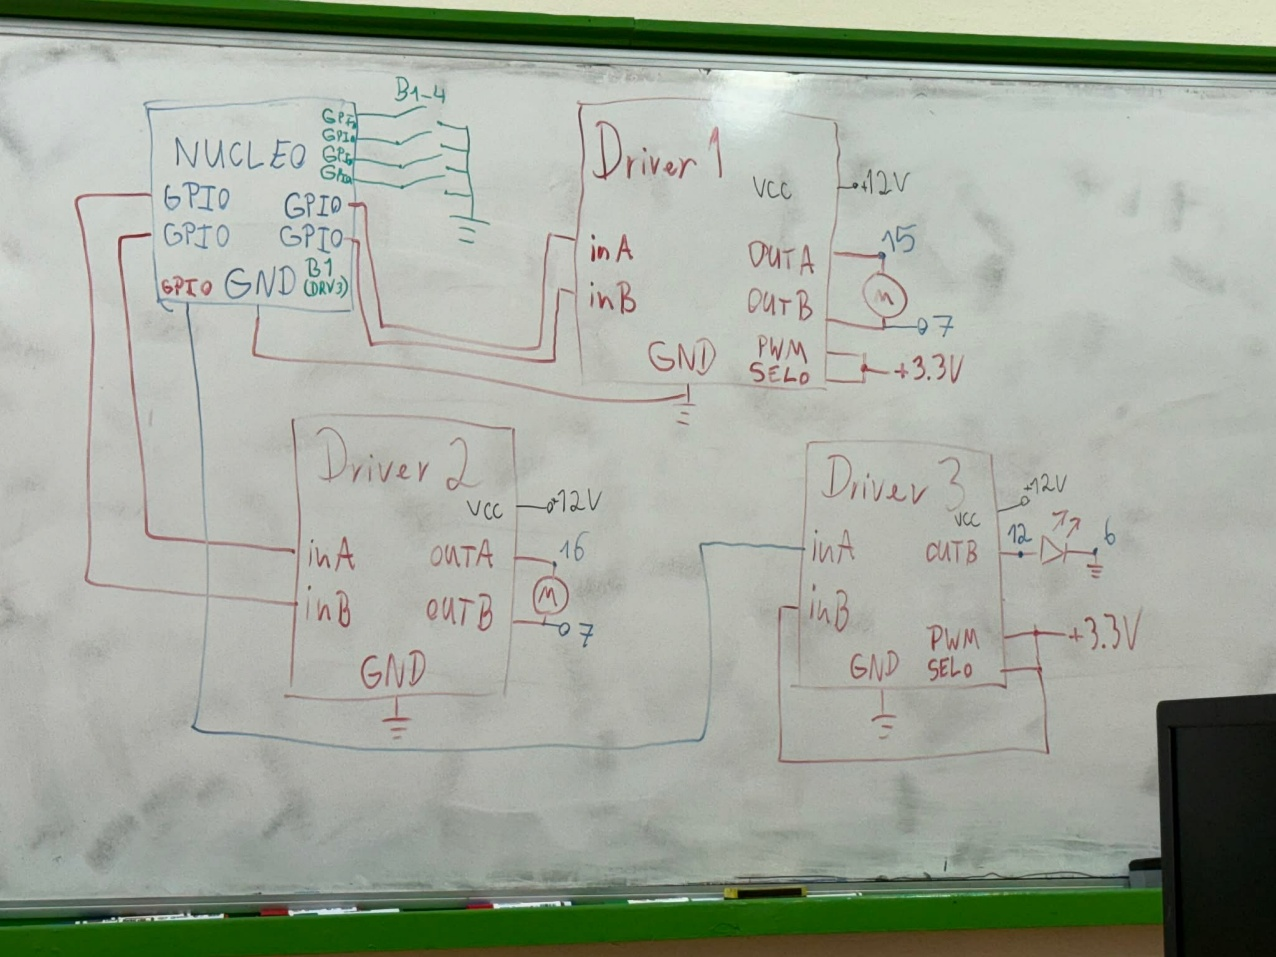 B1-4
GPIO
GPIO
GPIO
GPIO
NUCLEO
GPIO GPIO
GPIO GPIO
GPIO GND B1
(DRV3)
Driver 1
VCC +12V
inA OUTA 15
M
inB OUTB 7
PWM
GND SEL0 +3.3V
Driver 2
VCC +12V
inA OUTA 16
M
inB OUTB 7
GND
Driver 3
+12V
VCC
inA OUTB 12 6
inB
PWM +3.3V
GND SEL0